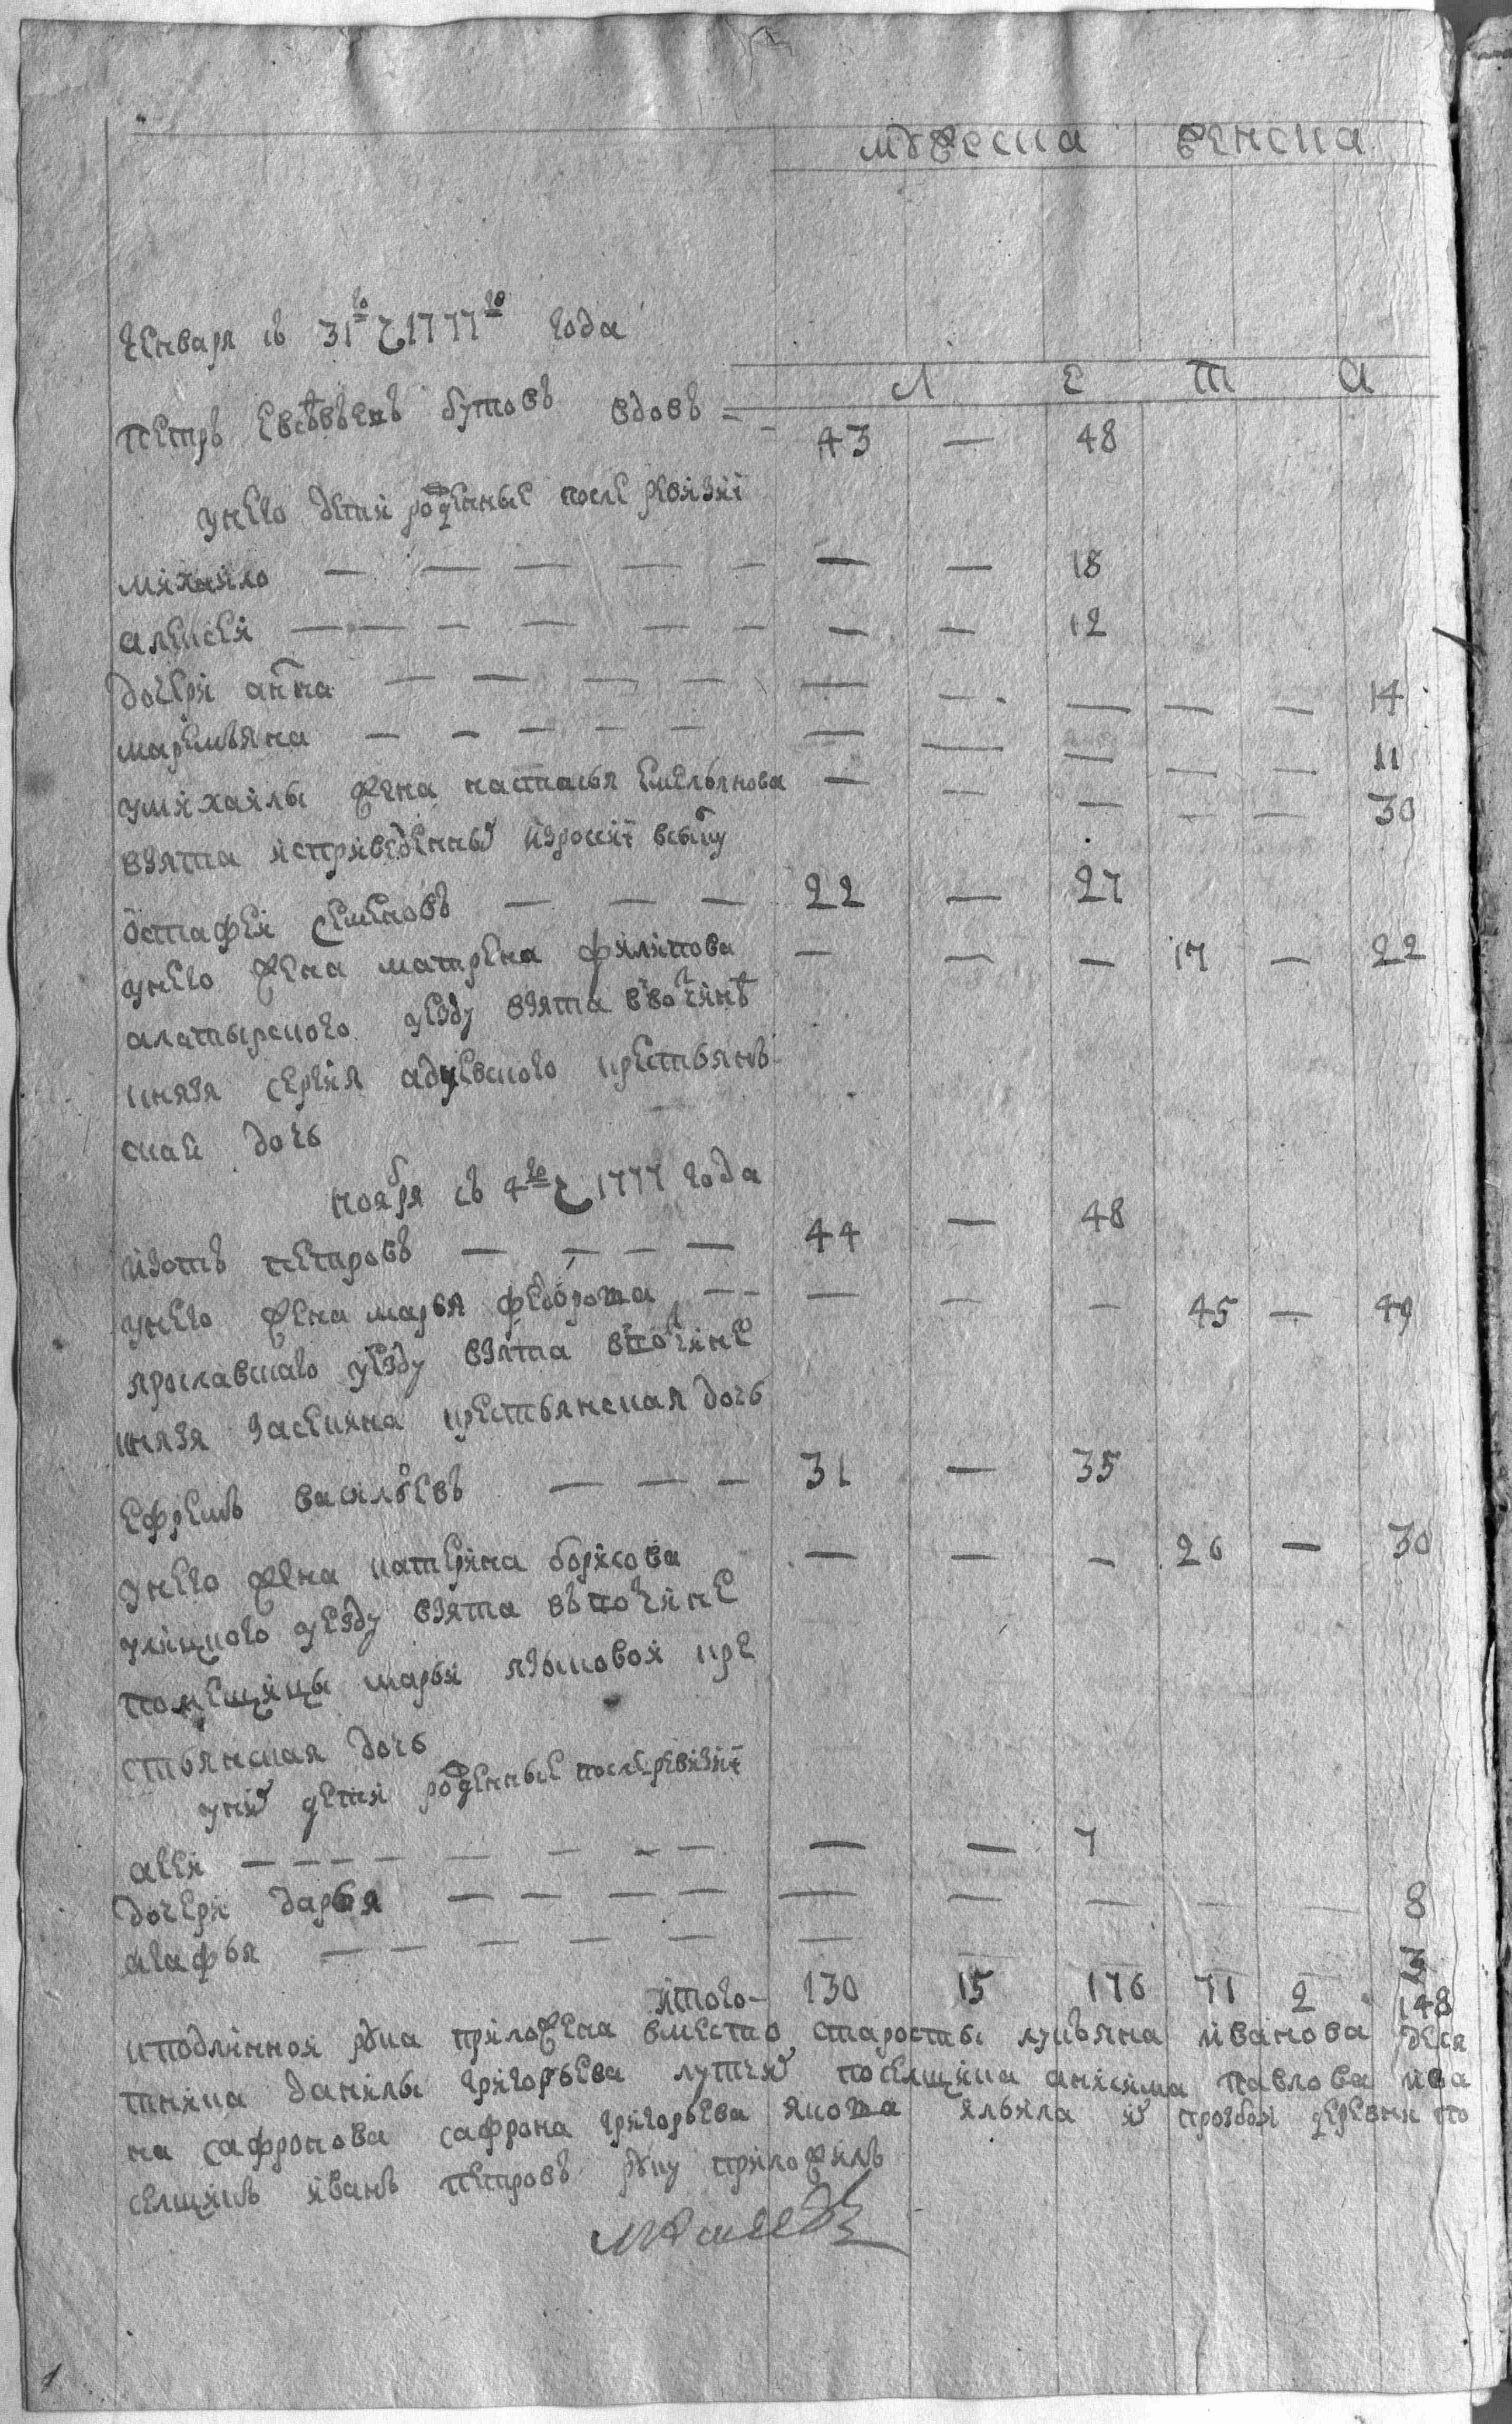 мужеска женска
генваря съ 31го ч 1777го года
Л Е Т А
петръ бутовъ вдовъ 43 — 48
унево дети рожденные после ревизии
михаило — — 18
алексей — — 12
дочери анна — — — — — 14
маремьяна — — — — — 11
умихаилы жена настасья емельянова — — — — — 30
взята
остафей семеновъ 22 — 27
унево жена матрена филипова — — — 17 — 22
алатырского уезду взята ввочинѣ
князя сергия адуевского крестьянъ
ская дочь
ноября съ 4го ч 1777 года
изотъ петровъ 44 — 48
унево жена марья федорова — — — 45 — 49
ярославскаго уезду взята вотчине
князя засекина крестьянская дочь
ефремъ васильевъ 31 — 35
унево жена катерина борисова — — — 26 — 30
углицкого уезду взята въ вотчине
помещицы марьи языковой кре
стьянская дочь
уних дети рожденные после ревизии
авеи — — 7
дочери дарья — — — — — 8
агафья — 3
итого 130 15 176 71 2 148
кподлинной рука приложена вместо старосты лукьяна иванова деся
тника данилы григорьева лутчих поселщика анисима павлова ива
на сафронова сафрона григорьева якова их прозбой деревни по
селщикъ иванъ петровъ руку приложилъ